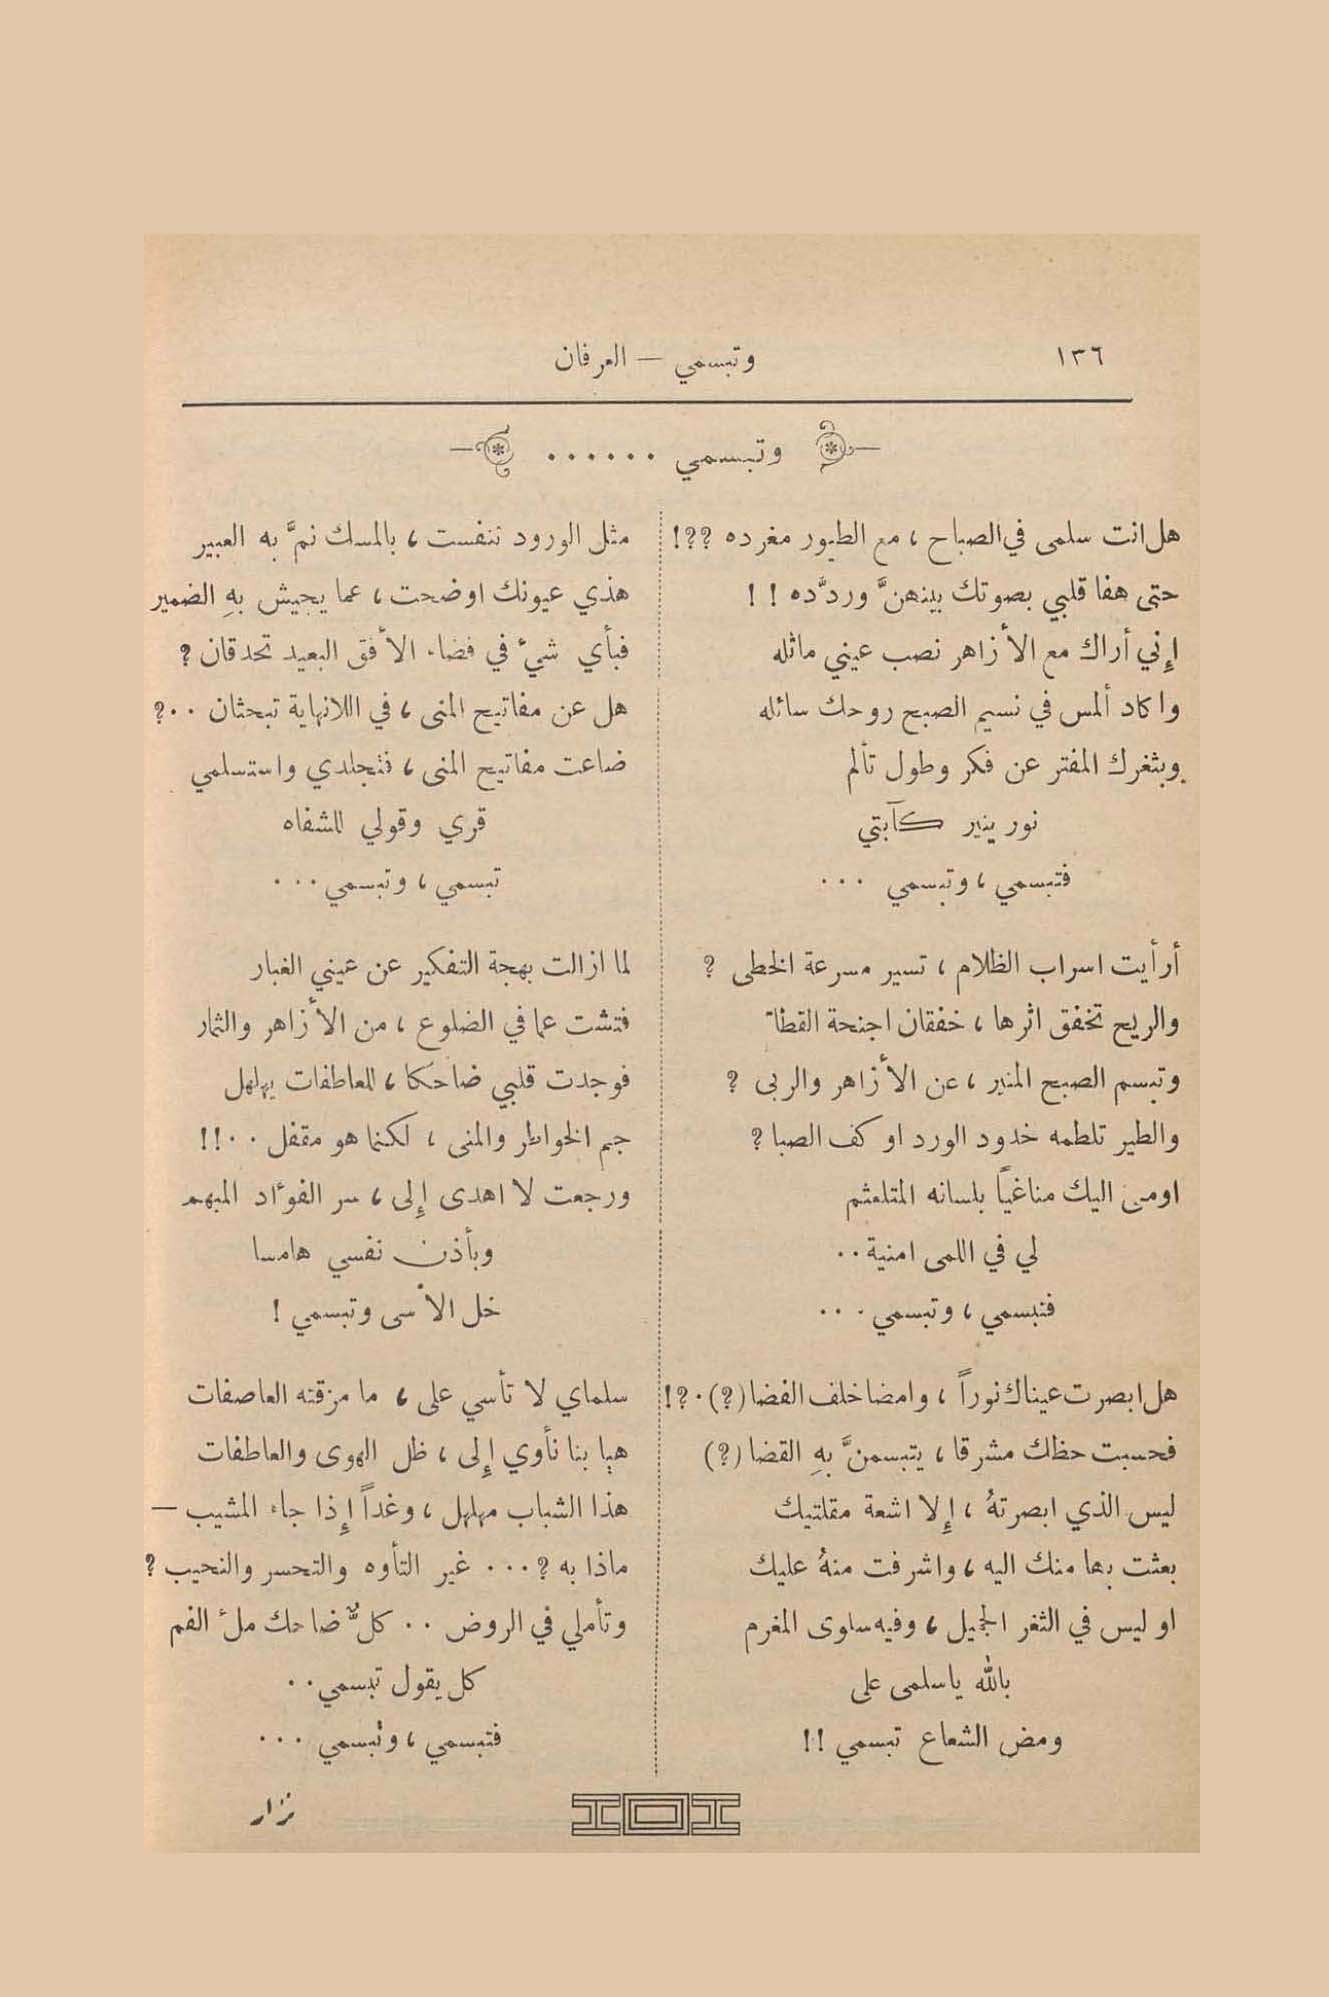 ١٣٦
وتبسمي — العرفان
وتبسمي ......
هل انت سلمى في الصباح ، مع الطيور مغرده ؟؟!
حتى هفا قلبي بصوتك بينهنَّ وردَّده ! !
إِني أراك مع الأزاهر نصب عيني ماثله
واكاد ألمس في نسيم الصبح روحك سائله
وبثغرك المفتر عن فكر وطول تألم
نور ينير كآبتي
فتبسمي ، وتبسمي ...
أرأيت اسراب الظلام ، تسير مسرعة الخطى ؟
والريح تخفق اثرها ، خفقان اجنحة القطا
وتبسم الصبح المنير ، عن الأزاهر والربى ؟
والطير تلطمه خدود الورد او كف الصبا ؟
اومى اليك مناغياً بلسانه المتلعثم
لي في اللمى امنية..
فتبسمي ، وتبسمي ...
هل ابصرت عيناك نوراً ، وامضا خلف الفضا (؟).؟!
فحسبت حظك مشرقا ، يتبسمنَّ بهِ القضا (؟)
ليس الذي ابصرتهُ ، إِلا اشعة مقلتيك
بعثت بها منك اليه ، واشرفت منهُ عليك
او ليس في الثغر الجميل ، وفيه سلوى المغرم
بالله ياسلمى على
ومض الشعاع تبسمي !!
مثل الورود تنفست ، بالمسك نمَّ به العبير
هذي عيونك اوضحت ، عما يجيش بهِ الضمير
فبأي شيء في فضاء الأفق البعيد تحدقان ؟
هل عن مفاتيح المنى ، في اللانهاية تبحثان ..؟
ضاعت مفاتيح المنى ، فتجلدي واستسلمي
قري وقولي للشفاه
تبسمي ، وتبسمي ...
لما ازالت بهجة التفكير عن عيني الغبار
فتشت عما في الضلوع ، من الأزاهر والثمار
فوجدت قلبي ضاحكا ، للعاطفات يهلهل
جم الخواطر والمنى ، لكنما هو مقفل ..!!
ورجعت لا اهدى إِلى ، سر الفؤاد المبهم
وبأذن نفسي هامسا
خل الأسى وتبسمي !
سلماي لا تأسي على ، ما مزقته العاصفات
هيا بنا نأوي إِلى ، ظل الهوى والعاطفات
هذا الشباب مهلهل ، وغداً إِذا جاء المشيب —
ماذا به ؟... غير التأوه والتحسر والنحيب ؟
وتأملي في الروض .. كلٌّ ضاحك ملء الفم
كل يقول تبسمي..
فتبسمي ، وتبسمي ...
نزار